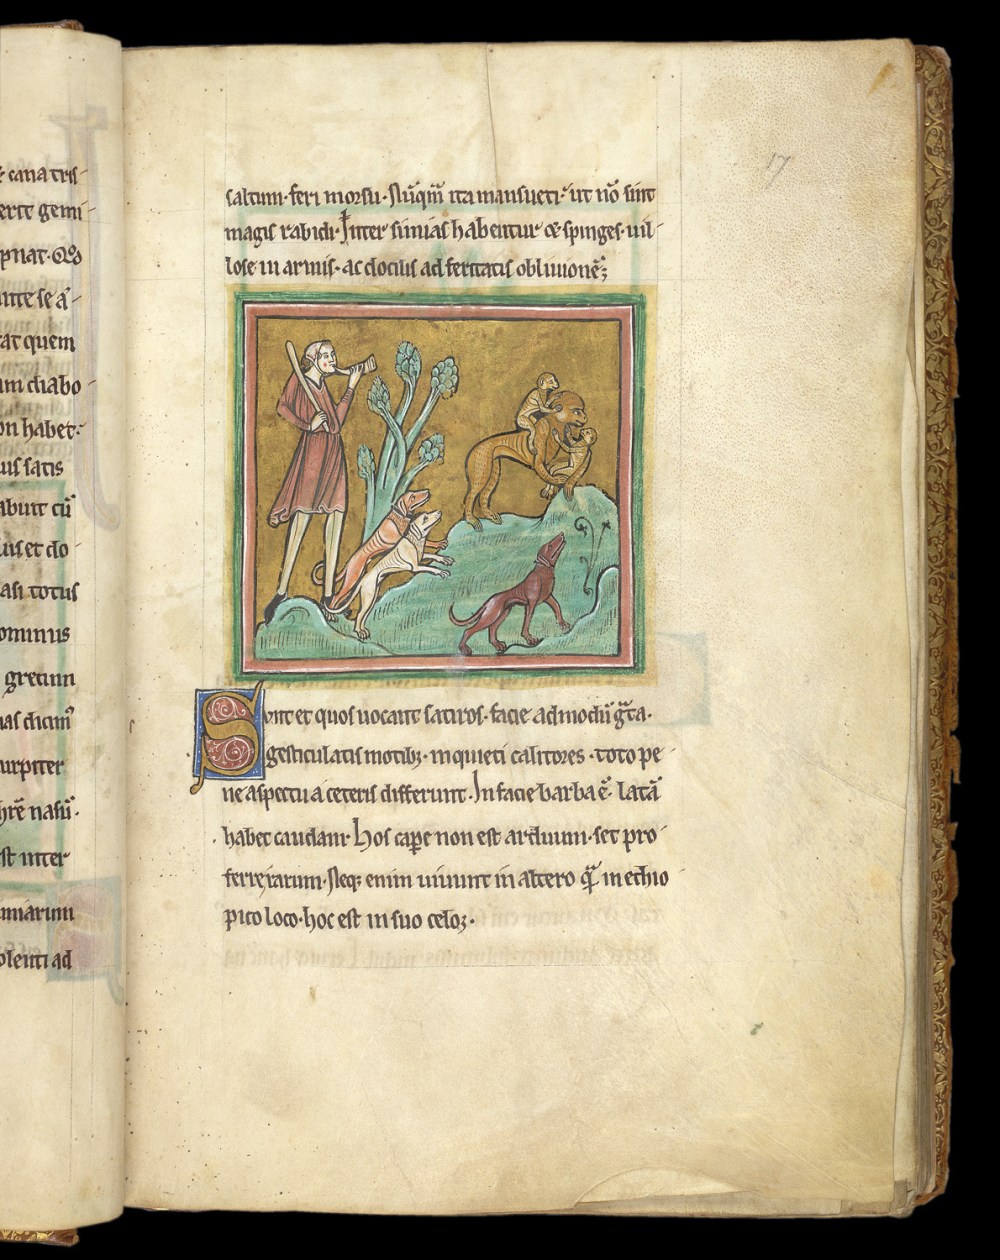 & cana tris-
erit gemi-
pnat. Quo
inte se a-
at quem
m diabo-
on habet.
uis satis
abunt cū
uis et do
asi totus
ominus
grecum
nas dicim
urpiter
hrē nasū.
st inter
miarum
olenti ad
17
saltum. feri morsu. Nūq̄m ita mansueti. ut nō sint
magis rabidi. Inter simias habentur & spinges. uil-
lose in armis. ac dociles ad feritatis obliuionē;
Sunt et quos uocant satiros. facie admodū g̃ta.
gesticulatis motibꝫ. inquieti calitores. toto pe
ne aspectu a ceteris differunt. In facie barba ē. latā
habet caudam. Hos cap̄e non est arduum. set pro
ferre rarum. Neqꝫ enim uiuunt in altero q̄ in ethio
pico loco. hoc est in suo celo;.